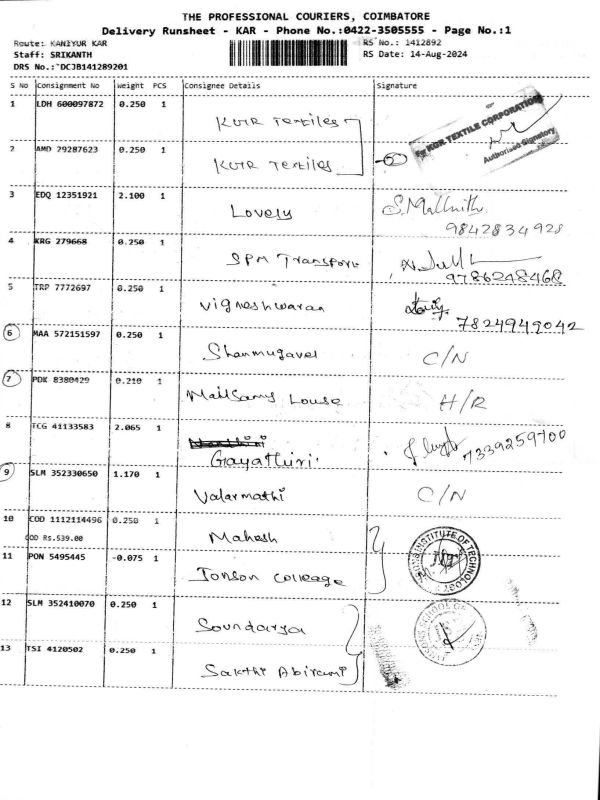 THE PROFESSIONAL COURIERS, COIMBATORE
Delivery Runsheet - KAR - Phone No.:0422-3505555 - Page No.:1
Route: KANIYUR KAR RS No.: 1412892
Staff: SRIKANTH RS Date: 14-Aug-2024
DRS No.: DCJB141289201
S No Consignment No Weight PCS Consignee Details Signature
1 LDH 600097872 0.250 1 KGTR Textiles
For KGR TEXTILE CORPORATION
Authorised Signatory
2 AMD 29287623 0.250 1 KGTR Textiles
3 EDQ 12351921 2.100 1 Lovely S. Mallnith
9842834928
4 KRG 279668 0.250 1 SPM Transport
9786248468
5 TRP 7772697 0.250 1 Vigneshwaran
7824949042
6 MAA 572151597 0.250 1 Shanmugavel C/N
7 PDK 8380429 0.210 1 Mailsamy Louse H/R
8 TCG 41133583 2.065 1 Gayathiri. 7339259700
9 SLM 352330650 1.170 1 Valarmathi C/N
10 COD 1112114496 0.250 1 Mahesh
COD Rs.539.00
INSTITUTE OF TECHNOLOGY
11 PON 5495445 -0.075 1 Jonson Colleage
12 SLM 352410070 0.250 1 Soundarya
SCHOOL OF
13 TSI 4120502 0.250 1 Sakthi Abirami